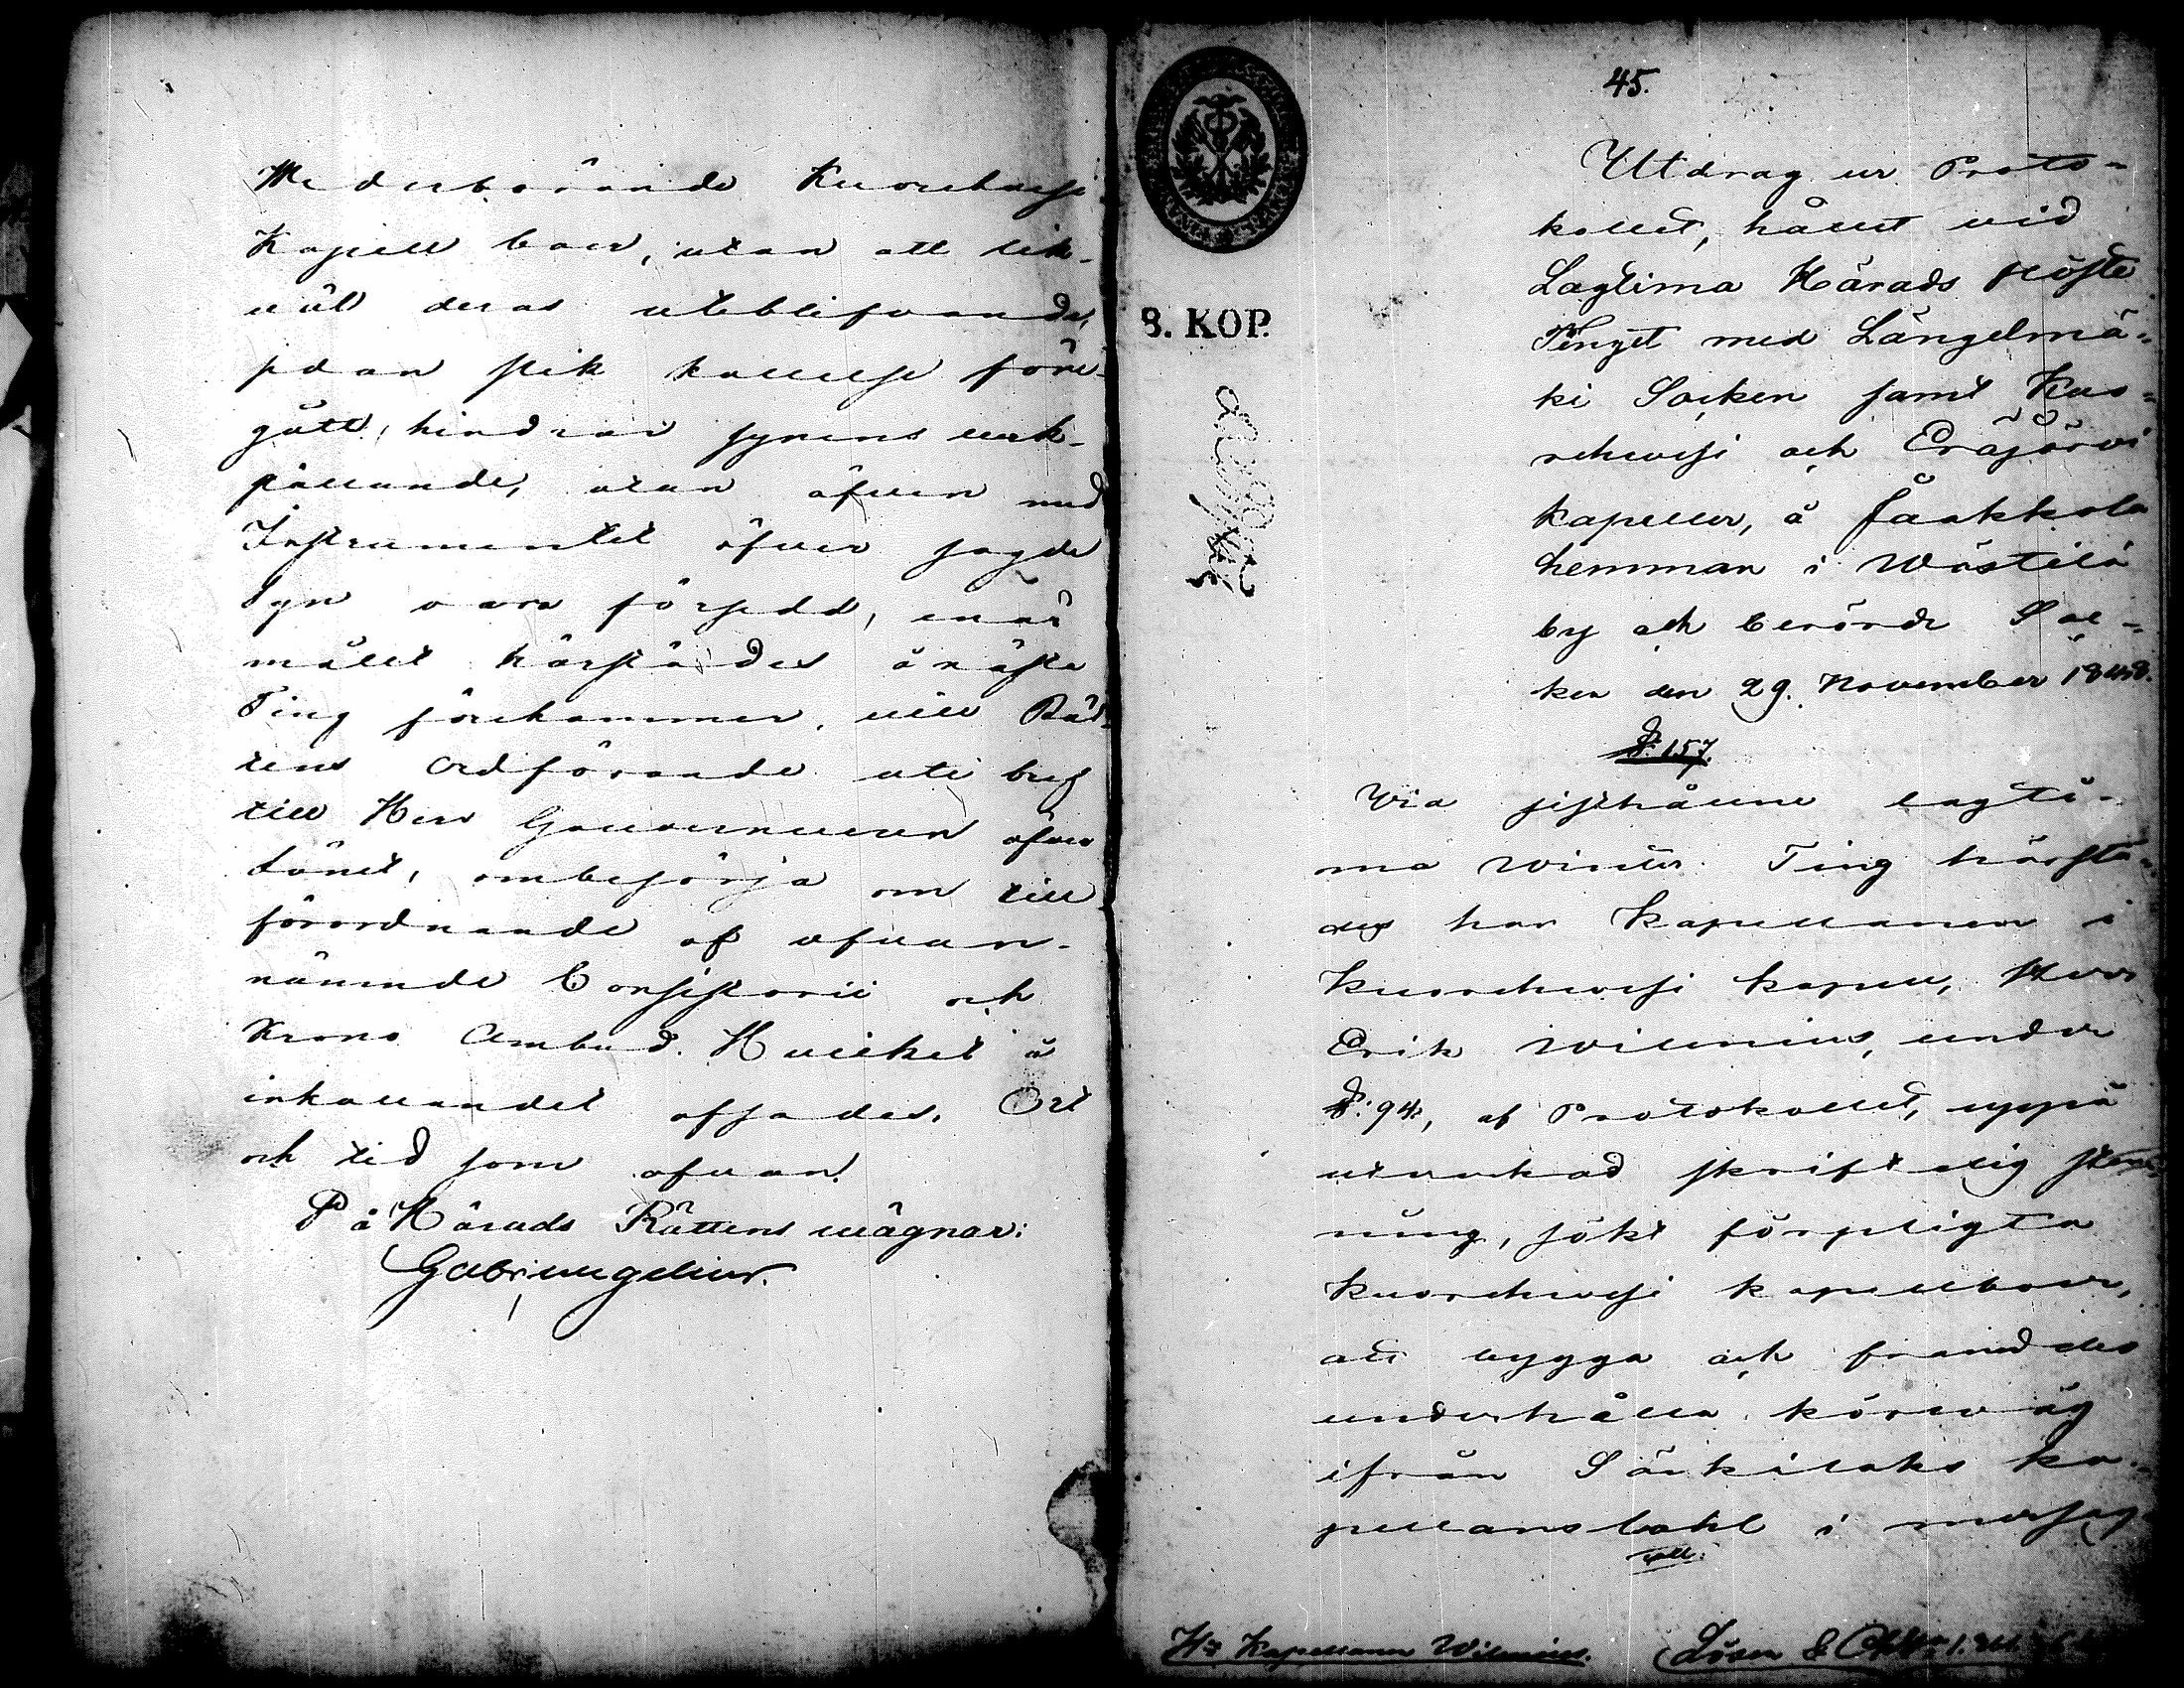 Wederbörande Kuorehwesi
Kapell boer, utan att lik-
väl deras uteblifvande,
sedan slik kallelse före-
gått, hindrar synens verk-
ställande, utan äfven med
Instrumentet öfver sagde
Syn vara försedd, enär
målet härstädes å näste
Ting förekommer, vill Rät-
tens Ordförande uti bref
till Herr Gouverneuren öfver
Länet, ombesörja om till-
förordnande af ofvan-
nämnde Consistorii och
Krono Ombud. Hvilket å
inkallandet afsades. Ort
och tid som ofvan.
På Härads Rättens wägnar:
45.
Utdrag ur Proto-
kollet, hållet vid
Lagtima Härads Höste
Tinget med Längelmä-
ki Socken samt Kuo-
rehwesi och Eräjärvi
kapeller, å Jaakkola
hemman i Wästilä
by och berörde Soc-
ken den 29. November 1848.
§. 157.
Wid sisthållne lagti-
ma Winter Ting härstä-
des har Kapellanen i
Kuorehwesi kapell, Herr
Erik Wilenius, under
§. 94, af Protokollet, uppå
utverkad skriftelig stäm-
ning, sökt förpligta
Kuorehwesi kapellboer,
att bygga och framdeles
underhålla körewäg
ifrån Särkilaks ka-
pellansbohl i mersag-
8. KOP.
Hr Kapellanen Wilenius.
Lösen &